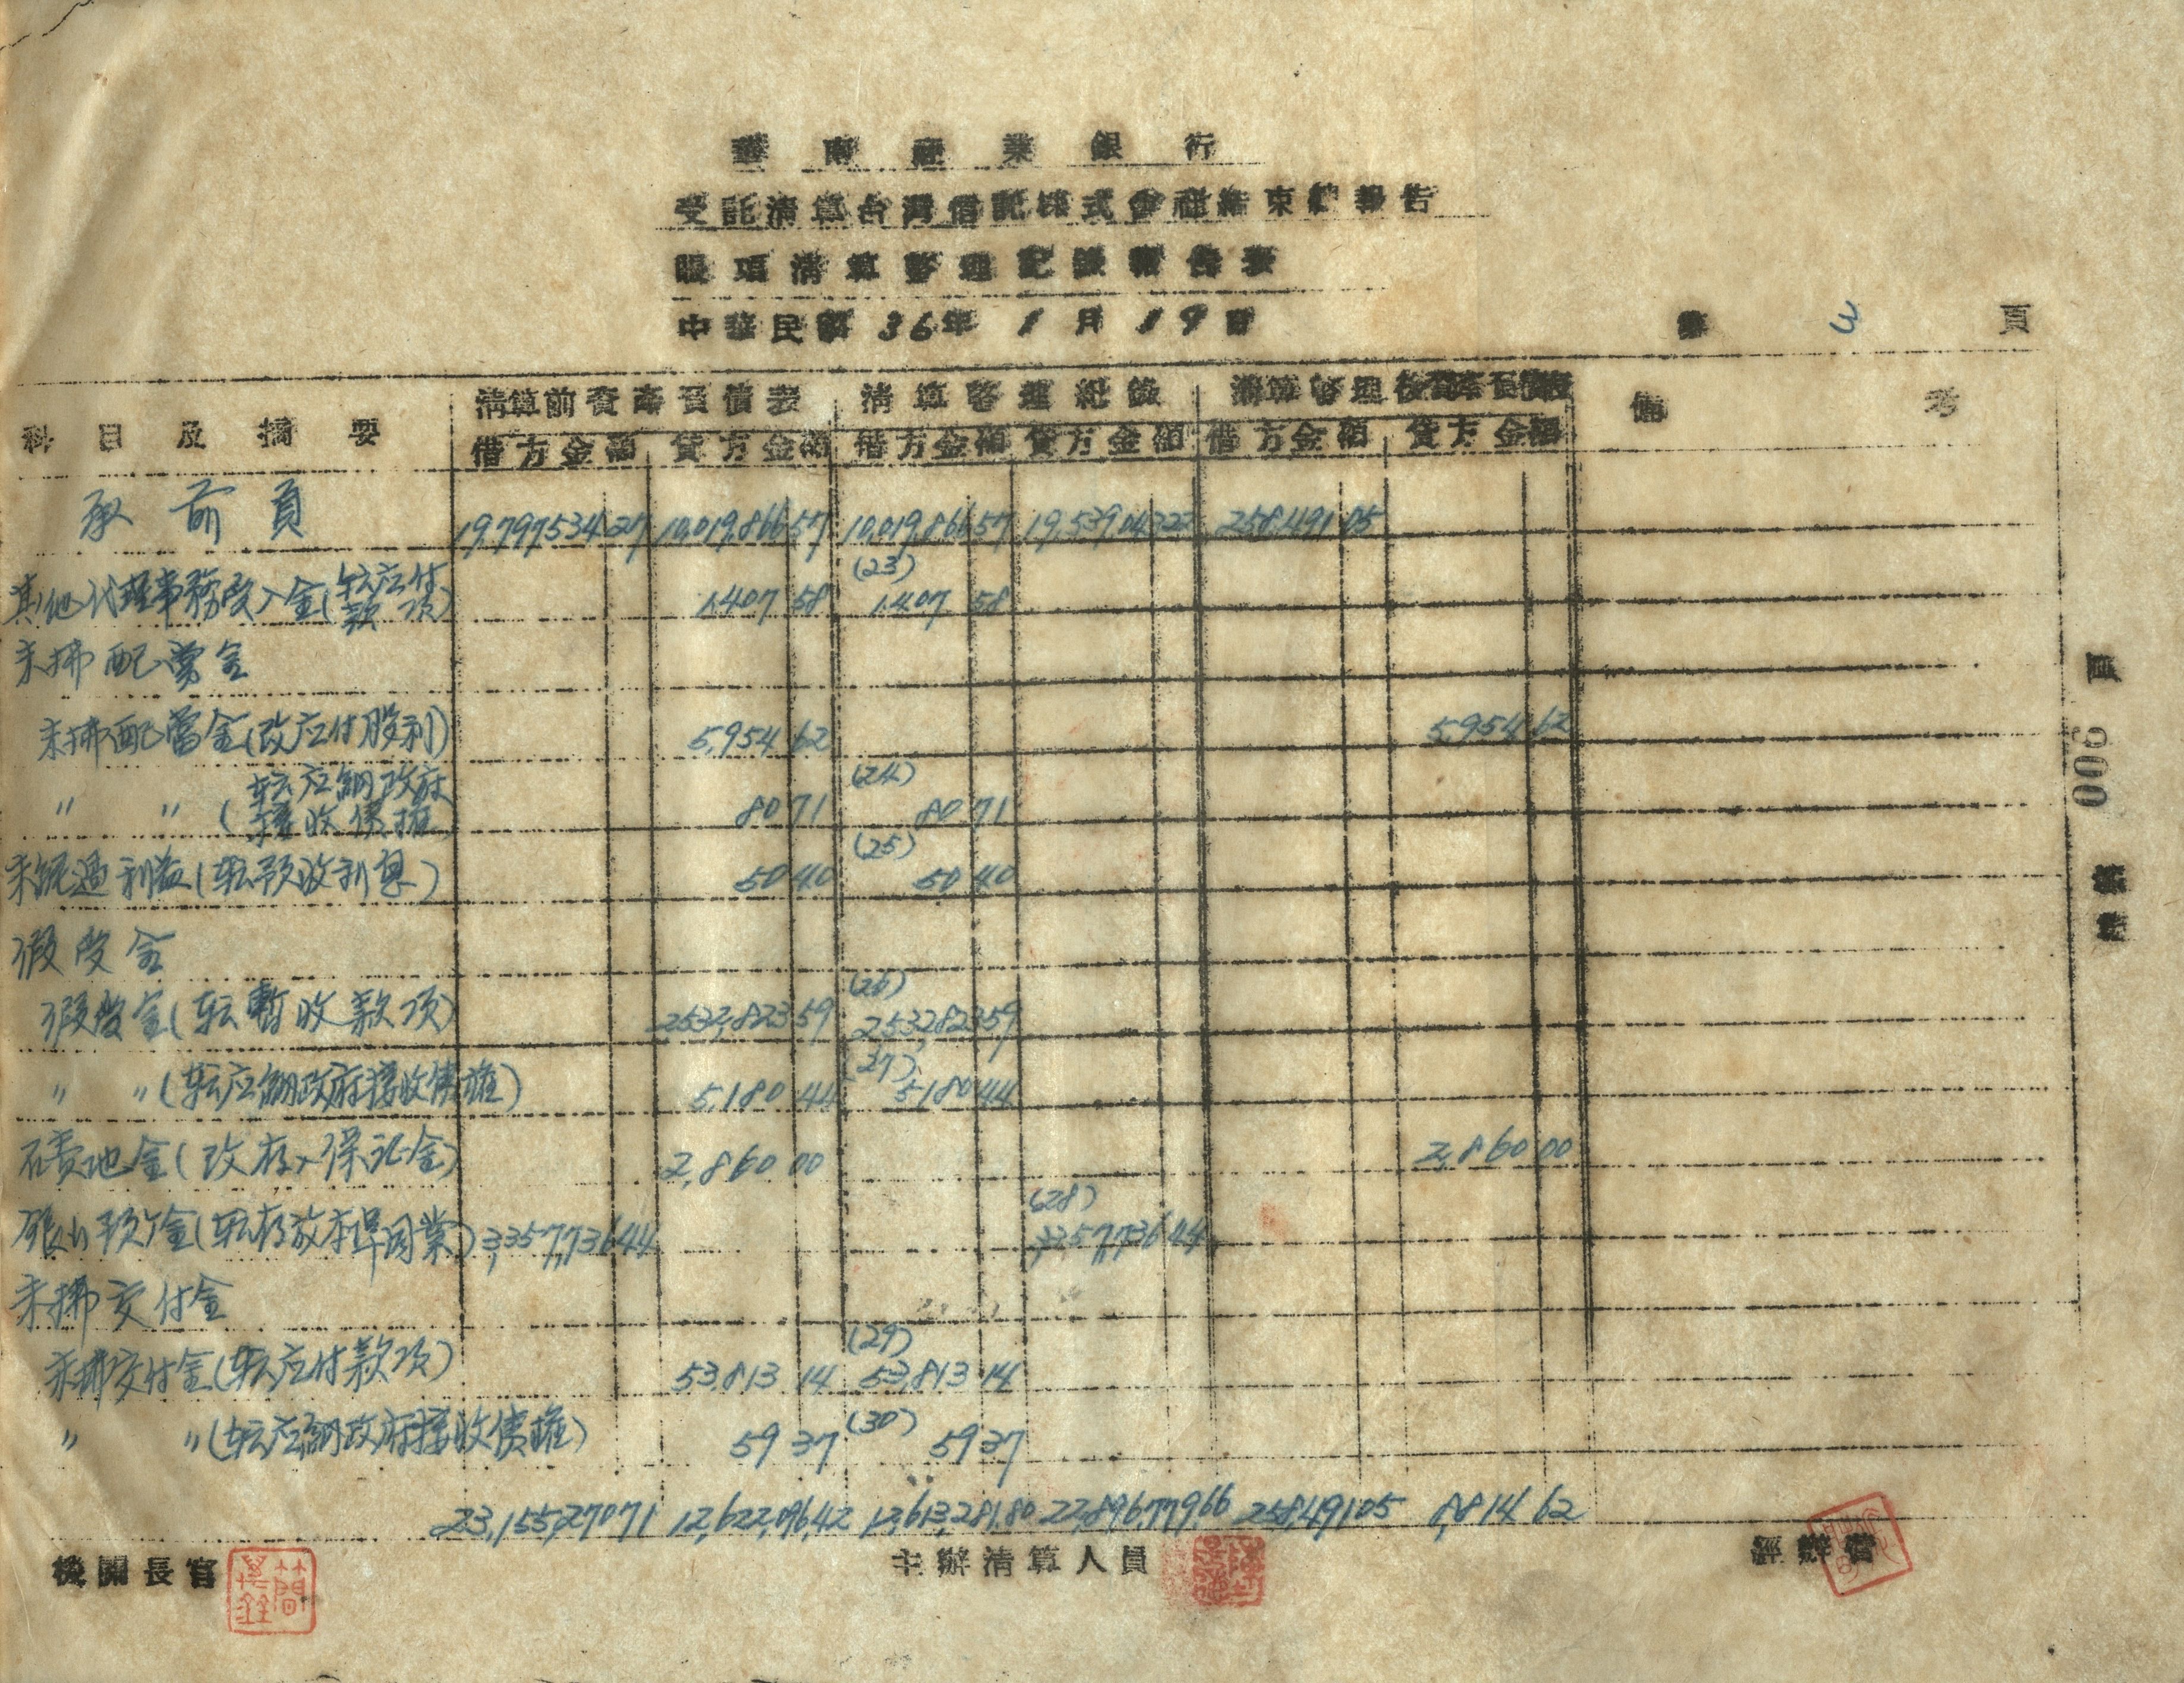 華南產業銀行
受託清算台灣信託株式會社結束總報告
賬項清算審理記錄報告表
中華民國36年1月19日
第 3 頁
科目及摘要 清算前資產負債表 清算審理紀錄 清算審理後資產負債表 備考
借方金額 貸方金額 借方金額 貸方金額 借方金額 貸方金額
承前頁 19,797,534 27 10,019,866 57 10,019,866 57 19,539,043 22 258,491 05
其他代理事務受入金(転应付款項) 1,407 58 (23) 1,407 58
未拂配當金
未拂配當金(改应付股利) 5,954 62 5,954 62
〃 〃 (転应納政府接收債権) 80 71 (24) 80 71
未経過利益(転預收利息) 50 40 (25) 50 40
假受金
假受金(転暫收款項) 2,532,823 59 (26) 2,532,823 59
〃 〃(転应納政府接收債権) 5,180 44 (27) 5,180 44
積地金(改存入保証金) 2,860 00 2,860 00
銀行預金(転存放本埠同業) 3,357,736 44 (28) 3,357,736 44
未拂交付金
未拂交付金(転应付款項) 53,813 14 (29) 53,813 14
〃 〃(転应納政府接收債権) 59 37 (30) 59 37
23,155,270 71 12,622,096.42 12,613,281.80 22,896,779.66 258,491 05 8,814 62
機關長官 主辦清算人員 經辦員
總第 005 頁